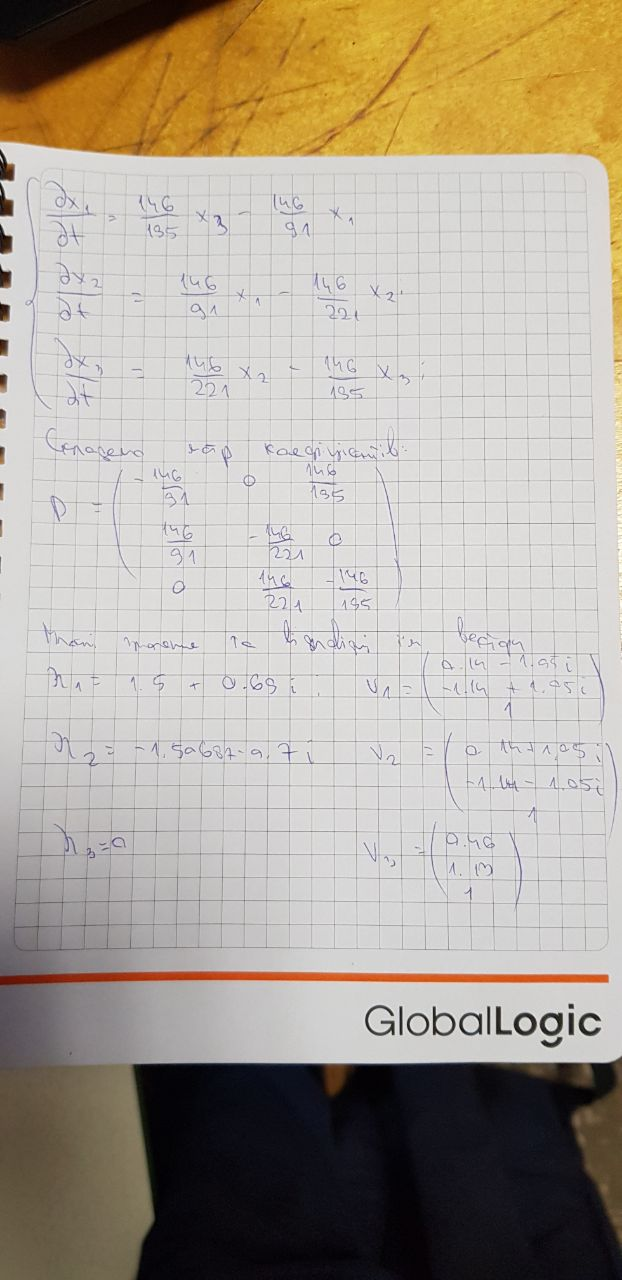 ∂x₁/∂t = 146/135 x₃ - 146/91 x₁
∂x₂/∂t = 146/91 x₁ - 146/221 x₂.
∂x₃/∂t = 146/221 x₂ - 146/135 x₃;
Складемо коефіцієнтів:
-146/91 0 146/135
D = 146/91 -146/221 0
0 146/221 -146/135
власні
λ₁ = 1.5 + 0.69i; V₁ = (0.14 - 1.05i
-1.14 + 1.05i
1)
λ₂ = -1.59687-0.7i V₂ = (0.14+1.05i
-1.14 - 1.05i
1)
λ₃=0 V₃ = (0.46
1.13
1)
GlobalLogic